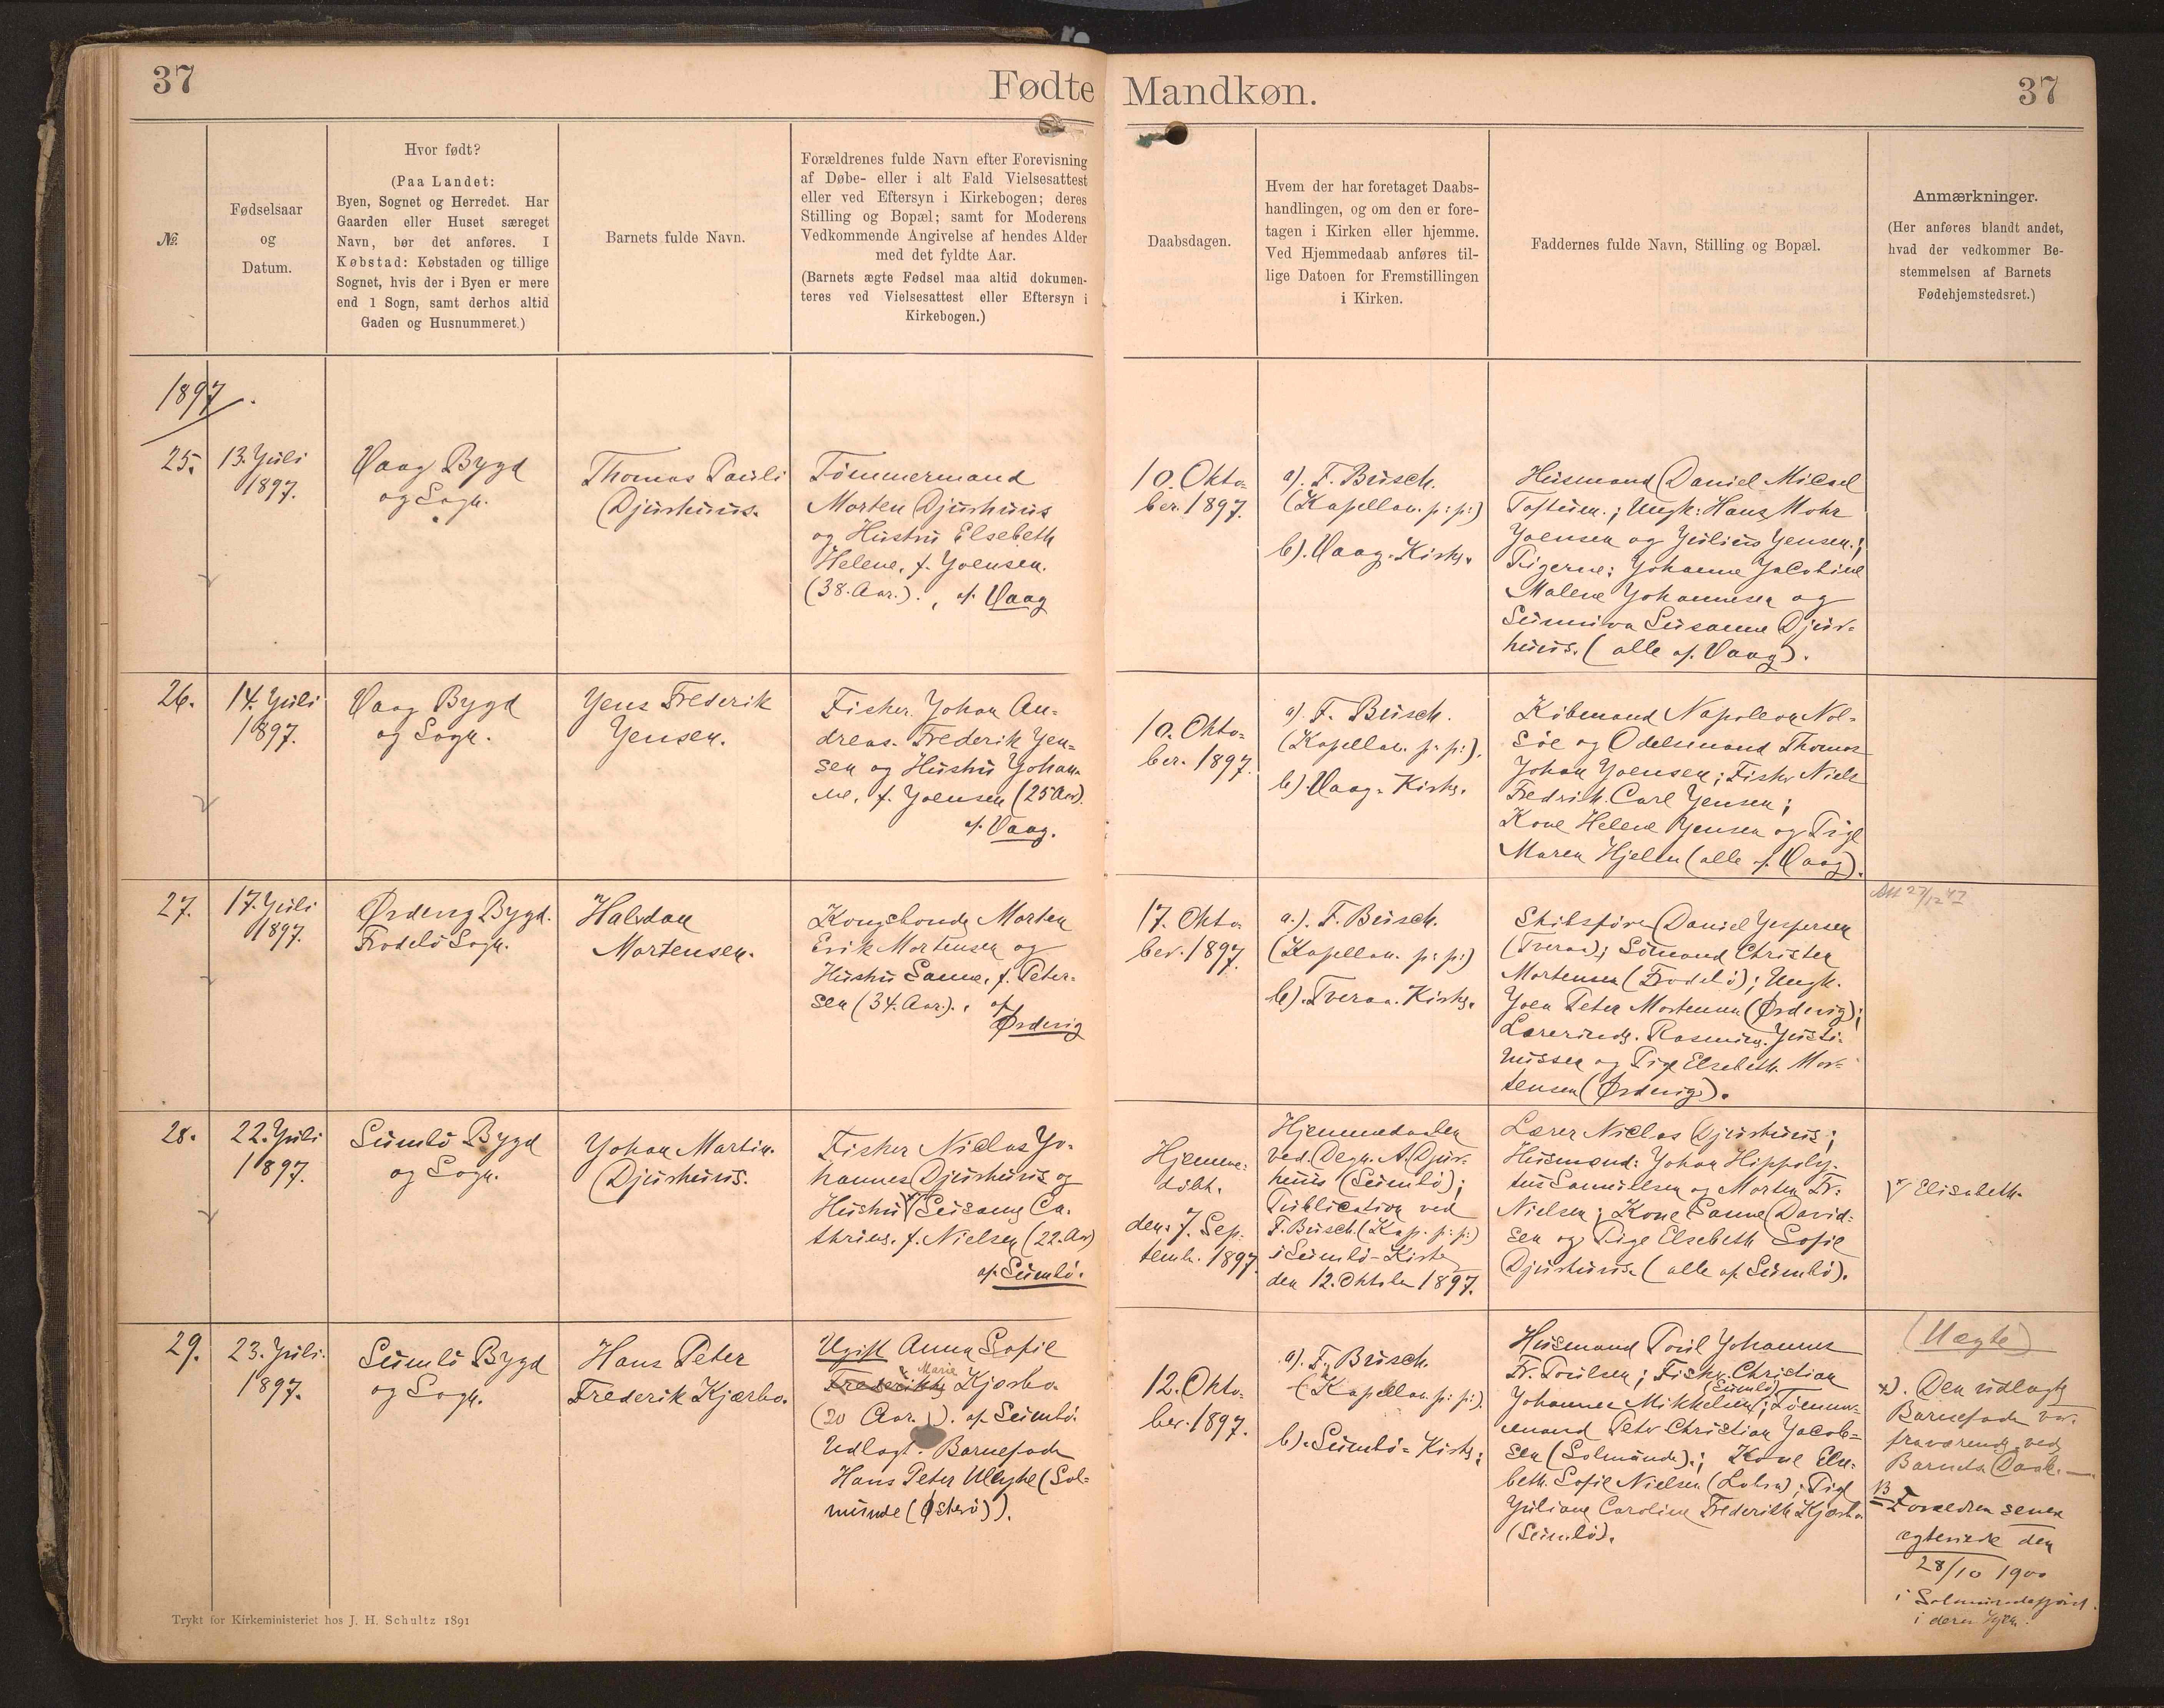 37
Fødte
Mandkøn.
37
№
Fødselsaar
og
Datum.
Hvor født?
(Paa Landet:
Byen, Sognet og Herredet. Har
Gaarden eller Huset særeget
Navn, bør det anføres. I
Købstad: Købstaden og tillige
Sognet, hvis der i Byen er mere
end 1 Sogn, samt derhos altid
Gaden og Husnummeret.)
Barnets fulde Navn.
Forældrenes fulde Navn efter Forevisning
af Døbe- eller i alt Fald Vielsesattest
eller ved Eftersyn i Kirkebogen; deres
Stilling og Bopæl; samt for Moderens
Vedkommende Angivelse af hendes Alder
med det fyldte Aar.
(Barnets ægte Fødsel maa altid dokumen-
teres ved Vielsesattest eller Eftersyn i
Kirkebogen.)
Daabsdagen.
Hvem der har foretaget Daabs-
handlingen, og om den er fore-
tagen i Kirken eller hjemme.
Ved Hjemmedaab anføres til-
lige Datoen for Fremstillingen
i Kirken.
Faddernes fulde Navn, Stilling og Bopæl.
Anmærkninger.
(Her anføres blandt andet,
hvad der vedkommer Be-
stemmelsen af Barnets
Fødehjemstedsret.)
1897.
25.
13. Juli
1897.
Vaag Bygd
og Sogn.
Thomas Pauli
Djurhuus.
Tömmermand
Morten Djurhuus
og Hustru Elsebeth
Helene, f. Joensen.
(38. Aar.)., af. Vaag
10. Okto-
ber. 1897.
a). F. Busch.
(Kapellan. p: p:)
b). Vaag-Kirke.
Husmand Daniel Micael
Toftum.; Ungk: Hans Mohr
Joensen og Julius Jensen.;
Pigerne: Johanne Jacobine
Malene Johannesen og
Sunniva Susanne Djur-
huus. (alle af. Vaag).
26.
14. Juli
1897.
Vaag Bygd
og Sogn.
Jens Frederik
Jensen.
Fisker. Johan An-
dreas. Frederik Jen-
sen og Hustru Johan-
ne, f. Joensen (25 Aar).
af. Vaag.
10. Okto-
ber. 1897.
a). F. Busch.
(Kapellan. p: p:).
b). Vaag-Kirke.
Købmand Napoleon Nol-
söe og Odelsmand Thomas
Johan Joensen; Fisker Niels
Fredrik. Carl Jensen;
Kone Helene Jensen og Pige
Maren Hjelm (alle af. Vaag).
27.
17. Juli
1897.
Ørdevig Bygd.
Frodebö Sogn.
Halvdan
Mortensen.
Kongsbonde Morten
Erik Mortensen og
Hustru Sanne, f. Peter-
sen (34. Aar)., af
Ørdevig
17. Okto-
ber. 1897.
a.). F. Busch.
(Kapellan. p: p:)
b). Tveraa. Kirke.
Skibsfører Daniel Jespersen
(Tveraa); Sömand Christen
Mortensen (Frodebö); Ungk.
Joen Peter Mortensen (Ørdevig);
Lærerinde. Rasmine. Justi-
nussen og Pige Elsebeth. Mor-
tensen (Ørdevig).
Att 27/12 47
28.
22. Juli
1897.
Sumbö Bygd
og Sogn.
Johan Martin.
Djurhuus.
Fisker Niclas Jo-
hannes Djurhuus og
Hustru Susanne Ca-
thrine. f. Nielsen (22. Aar)
af. Sumbö.
Hjemme-
döbt.
den. 7. Sep-
temb. 1897.
Hjemmedaaben
ved. Degn. A. Djur-
huus (Sumbö);
Publication ved
F. Busch. (Kap. p: p:)
i Sumbö-Kirke
den 12. Oktober 1897.
Lærer Niclas Djurhuus;
Husmænd: Johan Hippoly-
tus Samuelsen og Morten Fr.
Nielsen; Kone Sanne David-
sen og Pige Elsebeth Sofie
Djurhuus. (alle af. Sumbö).
Elisabeth.
29.
23. Juli.
1897.
Sumbö Bygd
og Sogn.
Hans Peter
Frederik Kjærbo.
Ugift Anna Sofie
Marie
Frederikke Kjærbo.
(20 Aar.). af. Sumbö.
Udlagt. Barnefader
Hans Peter (Sol-
munde (Østerö)).
12. Okto-
ber. 1897.
a). F. Busch.
(Kapellan. p: p:).
b). Sumbö-Kirke;
Husmand Poul Johannes
Fr. Poulsen; Fisker. Christian
(Sumbö)
Johannes Mikkelsen; Tömmer-
mand Peter Christian Jacob-
sen (Solmunde).; Kone Else-
beth. Sofie Nielsen (Lobra); Pige
Juliane Caroline Frederikke Kjærbo
(Sumbö).
(Uægte)
x). Den udlagte
Barnefader var.
fraværende. ved
Barnets Daab. —
B
Forældrene senere
ægteviede den
28/10 1900
i Solmundefjord.
i deres Hjem.
Trykt for Kirkeministeriet hos J. H. Schultz 1891